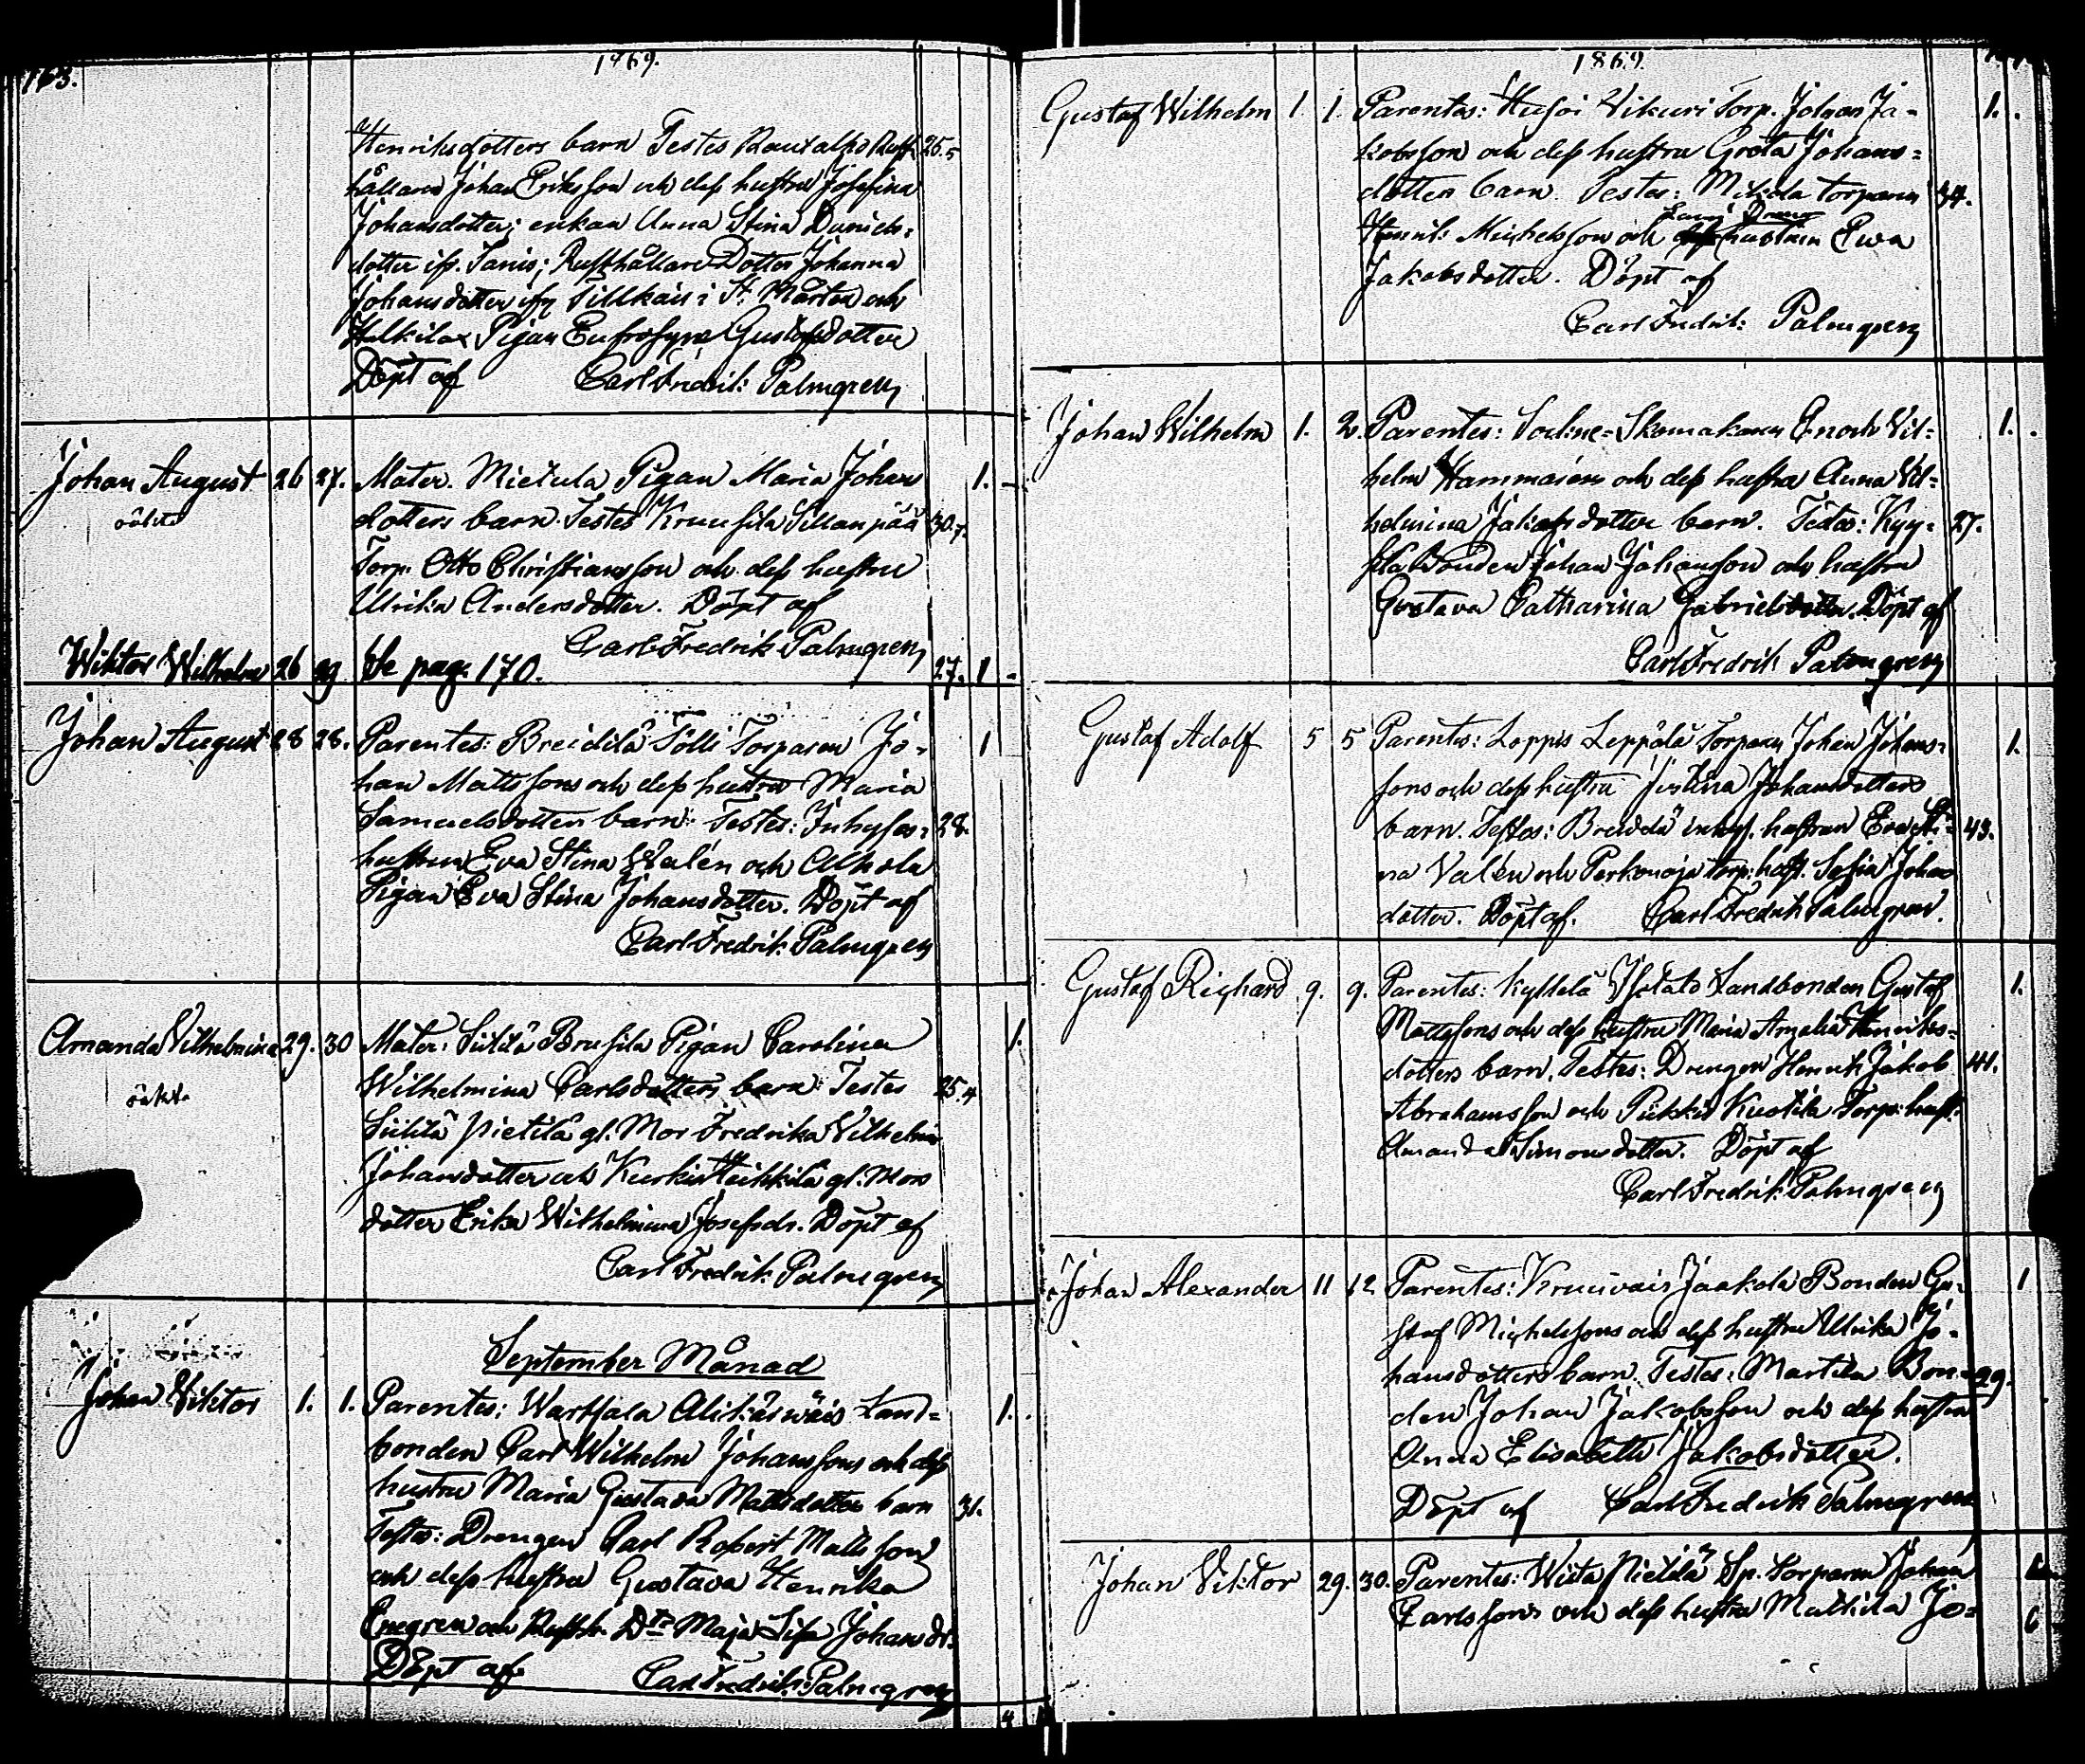 163.
1869.
Henriksdotters barn Testes Rautalho Rust-
25.5
hållaren Johan Eriksson och dess hustru Josefina
Johansdotter; enkan Anna Stina Daniels-
dotter ifr. Tanis; Rusthållare Dotter Johanna
Johansdotter ifr Tillkais i St. Mårten och
Pigan Eufrosyne Gustafsdotter
Döpt af Carl Fredrik Palmgren
Johan August 26 27. Mater. Mietula Pigan Maria Johans 1. -
oäkta dotters barn. Testes Kruusila Sillanpää 30.7.
Torp. Otto Christiansson och dess hustru
Ulrika Andersdotter. Döpt af
Carl Fredrik Palmgren
Wiktor Wilhelm 26 29 Se pag. 170. 27. 1 -
Johan August 28 28. Parentes: Breidilä Tölli Torparen Jo- 1
han Mattssons och dess hustru Maria
Samuelsdotters barn: Testes: Inhyses- 28.
hustrun Eva Stina Walén och Alhola
Pigan Eva Stina Johansdotter. Döpt af
Carl Fredrik Palmgren
Amanda Vilhelmina 29. 30 Mater: Siitilä Brusila Pigan Carolina 1.
oäkta Wilhelmina Carlsdotters barn: Testes 25.4
Siitilä Pietilä gl. Mor Fredrika Vilhelmina
Johansdotter och Kurkis Heikkilä gl. Mors
dotter Erika Wilhelmina Josefsdr. Döpt af
Carl Fredrik Palmgren
September Månad
Johan Viktor 1. 1. Parentes: Wartsala Alikäswäis Land- 1.
bonden Carl Wilhelm Johanssons och dess
hustru Maria Gustava Mattsdotter barn 31.
Testes: Drengen Carl Robert Mattsson
och dess hustru Gustava Henrika
Enegren och Rusth. Dtr Maja Lisa Johansdr.
Döpt af Carl Fredrik Palmgren
1869.
Gustaf Wilhelm 1. 1. Parentes: Hujoi Vikuri Torp. Johan Ja- 1.
kobsson och dess hustru Greta Johans-
dotter barn. Testes: Mikola torparen 34.
Henrik Michelsson och hustrun Ewa
Jakobsdotter. Döpt af
Carl Fredrik Palmgren
Johan Wilhelm 1. 2. Parentes: Sockne-Skomakaren Enoch Vil- 1.
helm Hammarén och dess hustru Anna Vil-
helmina Jakobsdotter barn. Testes: Kyy- 27.
Bonden Johan Johansson och hustru
Gustava Catharina Gabrielsdotter. Döpt af
Carl Fredrik Palmgren
Gustaf Adolf 5 5 Parentes: Loppis Leppälä Torparen Johan Johans- 1.
sons och dess hustru Justina Johansdotters
barn. Testes: Breidilä inhys. hustrun Eva Sti- 43.
na Valén och Perkonoja Torp: hust. Sofia Johans
dotter. Döpt af. Carl Fredrik Palmgren.
Gustaf Richard 9. 9. Parentes: Kyllelä Ylätalo Landbonden Gustaf 1.
Mattssons och dess hustru Maria Amalia Henriks-
dotters barn. Testes: Drengen Henrik Jakob 41.
Abrahamsson och Pukkis Kustila Torp: hust:
Amanda Simonsdotter. Döpt af
Carl Fredrik Palmgren
Johan Alexander 11 12 Parentes: Kruuvais Jaakola Bonden Gu- 1
staf Michelssons och dess hustru Ulrika Jo-
hansdotters barn. Testes: Martila Bon- 29.
den Johan Jakobsson och dess hustru
Anna Elisabeth Jakobsdotter.
Döpt af Carl Fredrik Palmgren
Johan Viktor 29. 30. Parentes: Wista Pietilä Sp. Torparen Johan
Carlssons och dess hustru Matilda Jo- 6